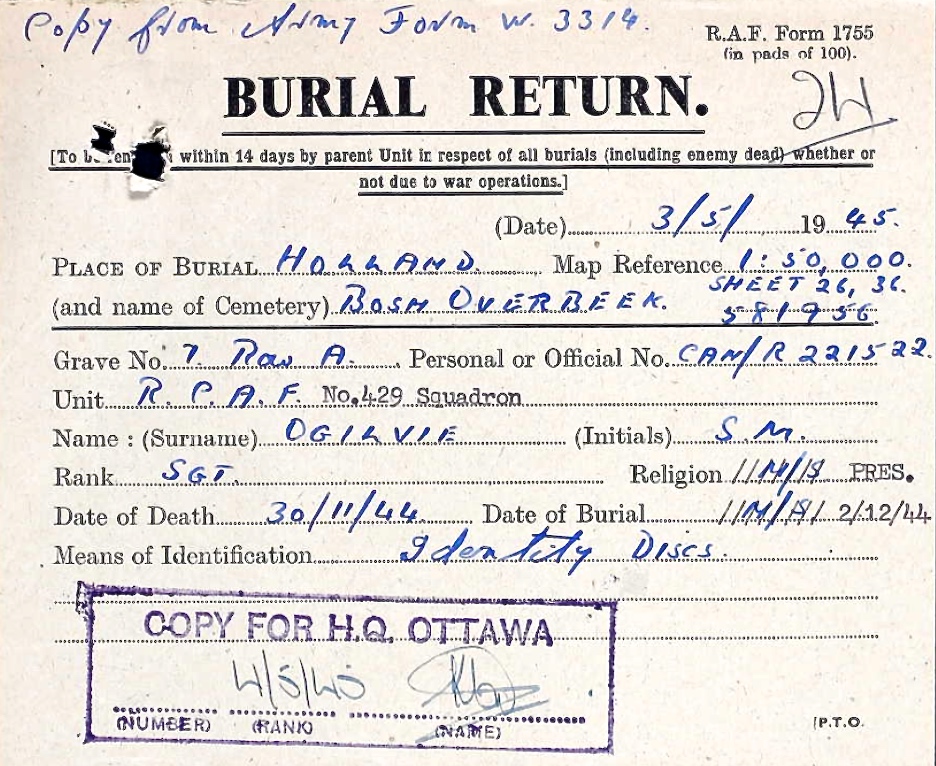 Copy from Army Form W. 3314.
R.A.F. Form 1755
(in pads of 100).
24
BURIAL RETURN.
[To be within 14 days by parent Unit in respect of all burials (including enemy dead) whether or
not due to war operations.]
(Date) 3/5/ 19 45.
PLACE OF BURIAL HOLLAND. Map Reference 1:50,000.
SHEET 26, 36.
(and name of Cemetery) BOSH OVERBEEK. 581756.
Grave No. 7. Row A. Personal or Official No. CAN/R 221522.
Unit R.C.A.F. No.429 Squadron
Name : (Surname) OGILVIE (Initials) S.M.
Rank SGT. Religion PRES.
Date of Death 30/11/44. Date of Burial 2/12/44
Means of Identification Identity Discs.
COPY FOR H.Q. OTTAWA
4/5/45
(NUMBER) (RANK) (NAME)
[P.T.O.